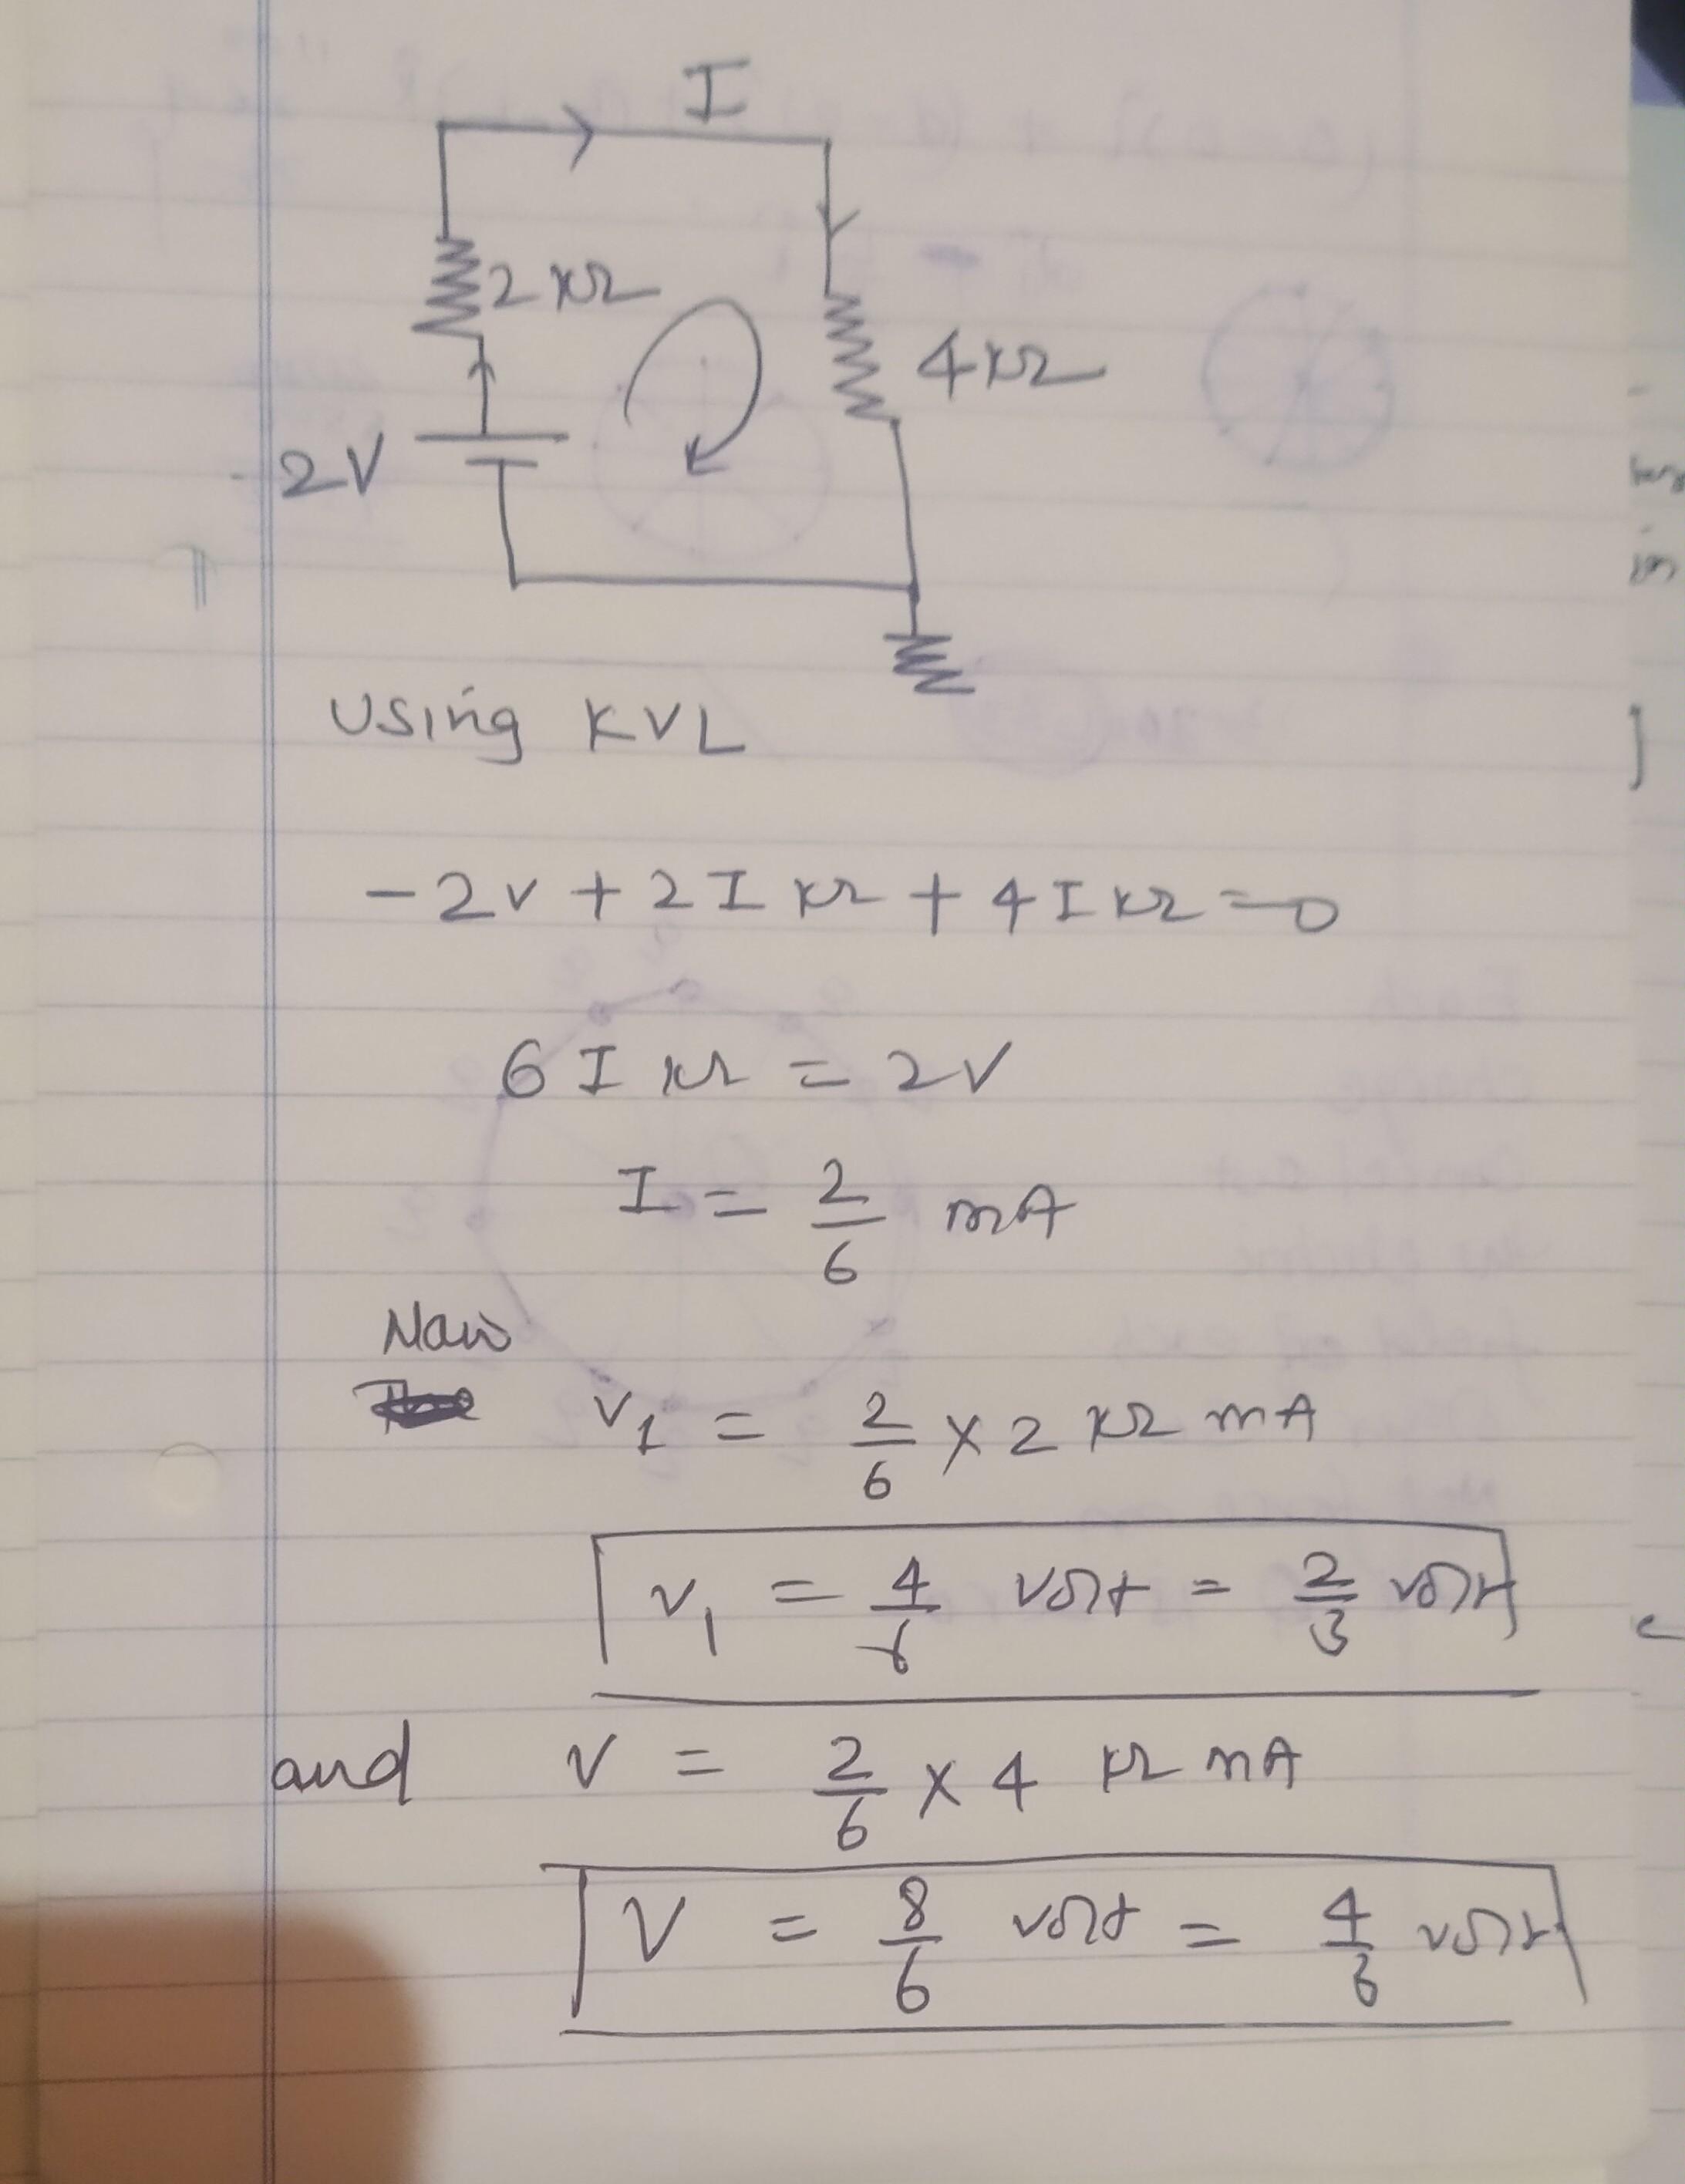 I
2 KΩ
4KΩ
2V
Using KVL
-2V + 2I KΩ + 4I KΩ = 0
6 I KΩ = 2V
I = 2/6 mA
Now
V1 = 2/6 × 2 KΩ mA
V1 = 4/6 volt = 2/3 volt
and V = 2/6 × 4 KΩ mA
V = 8/6 volt = 4/3 volt